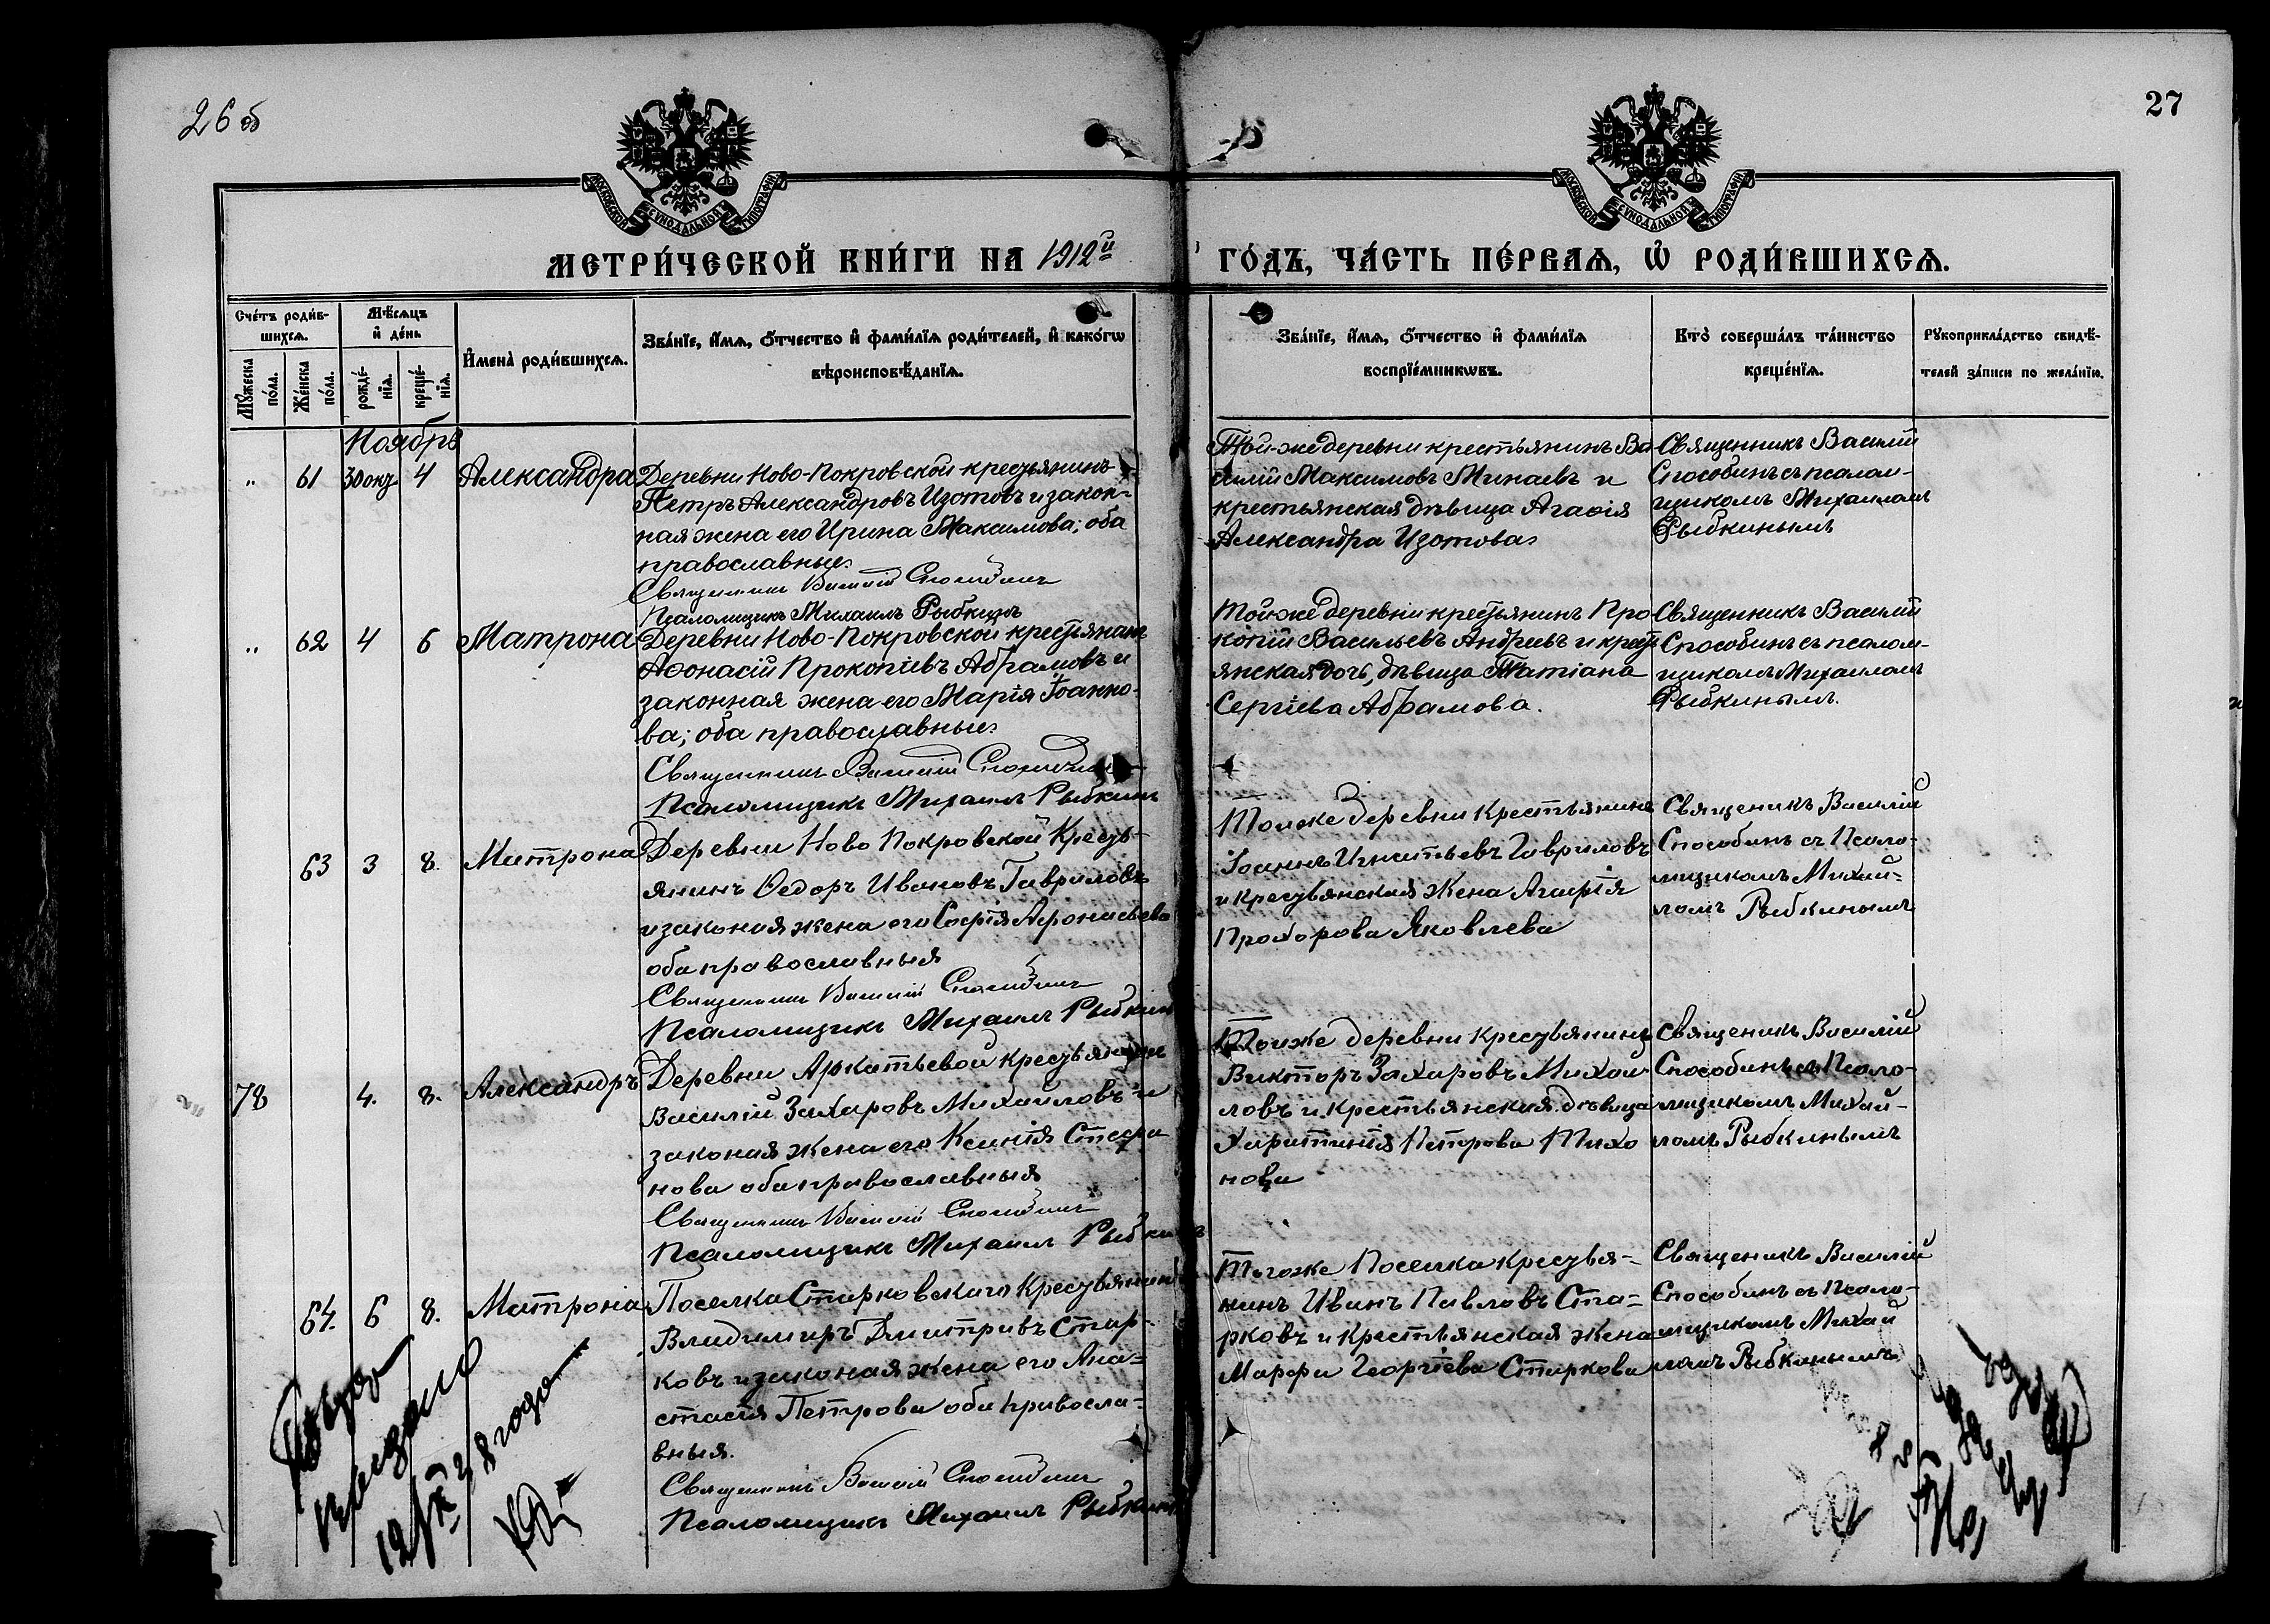 26 об
27
МОСКОВСКОЙ СУНОДАЛЬНОЙ ТИПОГРАФІИ
МОСКОВСКОЙ СУНОДАЛЬНОЙ ТИПОГРАФІИ
МЕТРИ́ЧЕСКОЙ КНИ́ГИ НА 1912й
ГО́ДЪ, ЧА́СТЬ ПЕ́РВАѦ, Ѡ РОДИ́ВШИХСѦ.
Сче́тъ роди́в-
шихсѧ.
Мꙋ́жеска по́ла.
Же́нска по́ла.
Мѣ́сѧцъ
и҆ де́нь
рожде́-
нїѧ.
креще́-
нїѧ.
И҆мена̀ роди́вшихсѧ.
Зва́нїе, и҆́мѧ, ѻ҆́тчество и҆ фамилїѧ роди́телей, и҆ како́гѡ
вѣроисповѣ́данїѧ.
Зва́нїе, и҆́мѧ, ѻ҆́тчество и҆ фами́лїѧ
воспрїе́мникѡвъ.
Кто̀ соверша́лъ та́инство
креще́нїѧ.
Рꙋкоприкла́дство свидѣ́-
телей за́писи по жела́нїю.
Ноябрь
„ 61 30 окт. 4 Александра
Деревни Ново-Покровской крестьянинъ
Петръ Александровъ Изотовъ и закон-
ная жена его Ирина Максимова; оба
православные.
Священникъ Василій Способинъ
Псаломщикъ Михаилъ Рыбкинъ
Той-же деревни крестьянинъ Ва-
силій Максимовъ Минаевъ и
крестьянская дѣвица Агаѳія
Александра Изотова.
Священникъ Василій
Способинъ съ псалом-
щикомъ Михаиломъ
Рыбкинымъ
„ 62 4 6 Матрона
Деревни Ново-Покровской крестьянинъ
Аѳонасій Прокопіевъ Абрамовъ и
законная жена его Марія Іоанно-
ва; оба православные.
Священникъ Василій Способинъ
Псаломщикъ Михаилъ Рыбкинъ
Той же деревни крестьянинъ Про
копій Васильевъ Андреевъ и крест
янская дочь, дѣвица Татіана
Сергіева Абрамова.
Священникъ Василій
Способинъ съ псалом-
щикомъ Михаиломъ
Рыбкинымъ.
63 3 8. Матрона
Деревни Ново Покровской Кресть-
янинъ Ѳедоръ Ивановъ Гавриловъ
и законая жена его Софія Афонасьева
оба православныя
Священникъ Василій Способинъ
Псаломщикъ Михаилъ Рыбкинъ
Тойже деревни Крестьянинъ
Іоаннъ Игнатьевъ Гавриловъ
и крестьянская Жена Агафія
Прохорова Яковлева
Священикъ Василій
Способинъ съ Псало-
мщикомъ Михай=
ломъ Рыбкинымъ
78 4. 8. Александръ
Деревни Аркатьевой крестьянинъ
Василій Захаровъ Михайловъ и
законая жена его Ксенія Стефа
нова оба православныя
Священникъ Василій Способинъ
Псаломщикъ Михаилъ Рыбкинъ
Тойже деревни Крестьянинъ
Викторъ Захаровъ Михай
ловъ и Крестьянская дѣвица
Харитинія Петрова Тихо
нова
Священикъ Василій
Способинъ съ Псало-
мщикомъ Михай-
ломъ Рыбкинымъ
64. 6 8. Матрона
Поселка Старковскаго Крестьянинъ
Владимиръ Дмитривъ Стар-
ковъ и законая жена его Ана=
стасія Петрова оба Правосла-
вныя.
Священникъ Василій Способинъ
Псаломщикъ Михаилъ Рыбкинъ
Тогоже Поселка Крестья-
нинъ Иванъ Павловъ Ста=
рковъ и Крестьянская жена
Марфа Георгіева Старкова
Священикъ Василій
Способинъ съ Псало-
мщикомъ Михай
ломъ Рыбкинымъ
года